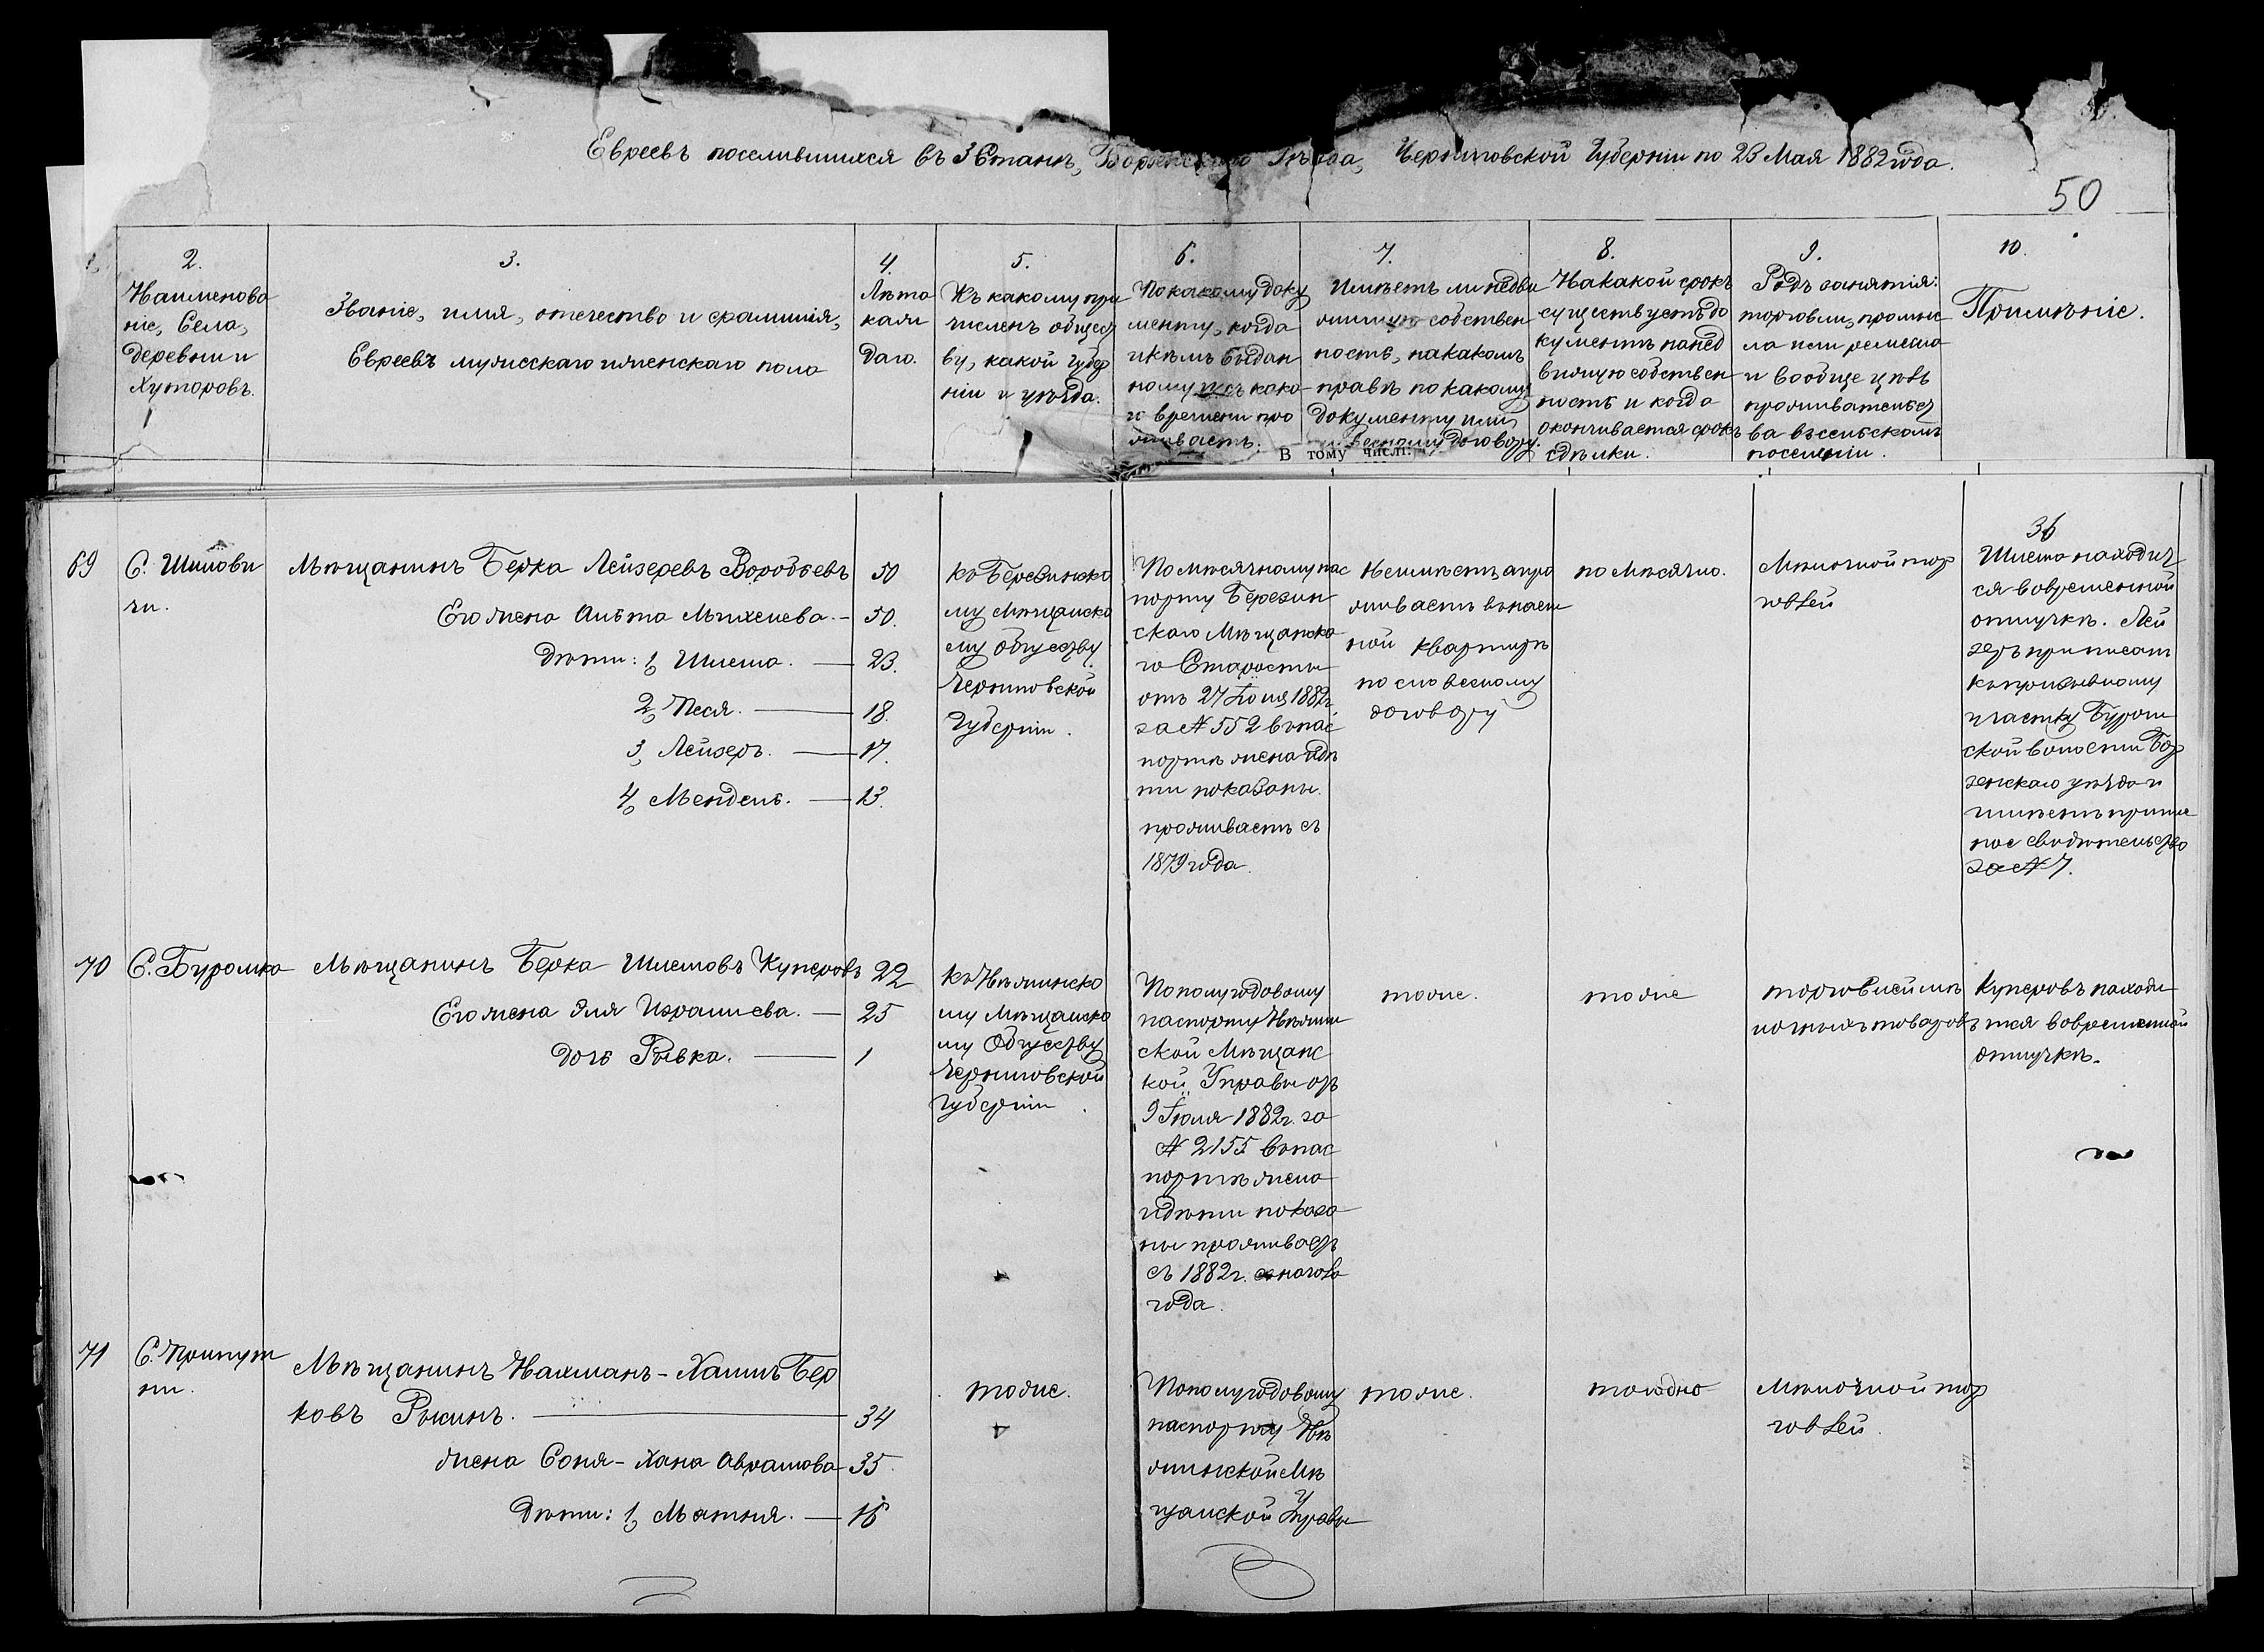 Евреевъ поселившихся въ 3 Станѣ, Борзенскаго Уѣзда, Черниговской Губерніи по 23 Мая 1882 года.
50
2.
Наименова
ніе, Села,
деревни и
Хуторовъ.
3.
Званіе, имя, отечество и фамилія,
Евреевъ мужескаго и женскаго пола
4.
Лѣта
каж
даго.
5.
Къ какому при
численъ общест
ву, какой губер
ніи и уѣзда.
6.
По какому доку
менту, когда
и кѣмъ выдан
ному и съ како
го времени про
живаетъ.
7.
Имѣетъ ли недви
жимую собствен
ность, на какомъ
правѣ по какому
документу или
словесному договору.
8.
На какой срокъ
существуетъ до
кументъ на нед
вижую собствен
ность и когда
оканчивается срокъ
сдѣлки.
9.
Родъ занятія:
торговли, промыс
ла или ремесла
и вообще цѣль
проживательст
ва въ сельскомъ
поселеніи.
10.
Примѣніе.
В тому числі:
69
С. Шилови
чи.
Мѣщанинъ Берка Лейзеревъ Воробьевъ 50
Его жена Альта Михелева. — 50.
Дѣти: 1, Шлема. — 23.
2, Песя. — 18.
3, Лейзеръ. — 17.
4, Мендель. — 13.
къ Березинско
му Мѣщанско
му обществу
Черниговской
Губерніи.
По мѣсячному пас
порту Березин
скаго Мѣщанска
го Старосты
отъ 27 Іюля 1882 г.
за № 552 въ пас
портѣ жена и дѣ
ти показаны.
проживаетъ съ
1879 года.
Не имѣетъ а про
живаетъ въ наем
ной квартирѣ
по словесному
договору
по Мѣсячно.
Мѣлочной тор
говлей
36
Шлема находит
ся в овременной
отлучкѣ. Лей
зеръ приписанъ
къ призывному
участку Буром
ской волости Бор
зенскаго уѣзда и
имѣетъ припис
ное свидѣтельство
за № 7.
70
С. Буромка
Мѣщанинъ Берка Шлемовъ Куперовъ 22
Его жена Эля Израилева. — 25
дочь Рывка. — 1
къ Нѣжинско
му Мѣщанско
му Обществу
Черниговской
губерніи.
По полугодовому
паспорту Нѣжин
ской Мѣщанс
кой Управы отъ
9 Іюля 1882 г. за
№ 2155 въ пас
портѣ жена
и дѣти показа
ны проживаетъ
съ 1882 г.
года.
тоже.
тоже
торговлей мѣ
лочныхъ товаровъ
Куперовъ находи
тся в овременной
отлучкѣ.
71
С. Припут
ни.
Мѣщанинъ Нахманъ-Хаимъ Бер
ковъ Рыкинъ. — 34
жена Соня-Хана Аврамова 35.
Дѣти: 1, Матля. — 15
тоже.
По полугодовому
паспорту Нѣ
жинской Мѣ
щанской Управы
тоже.
Мѣлочной тор
говлей.